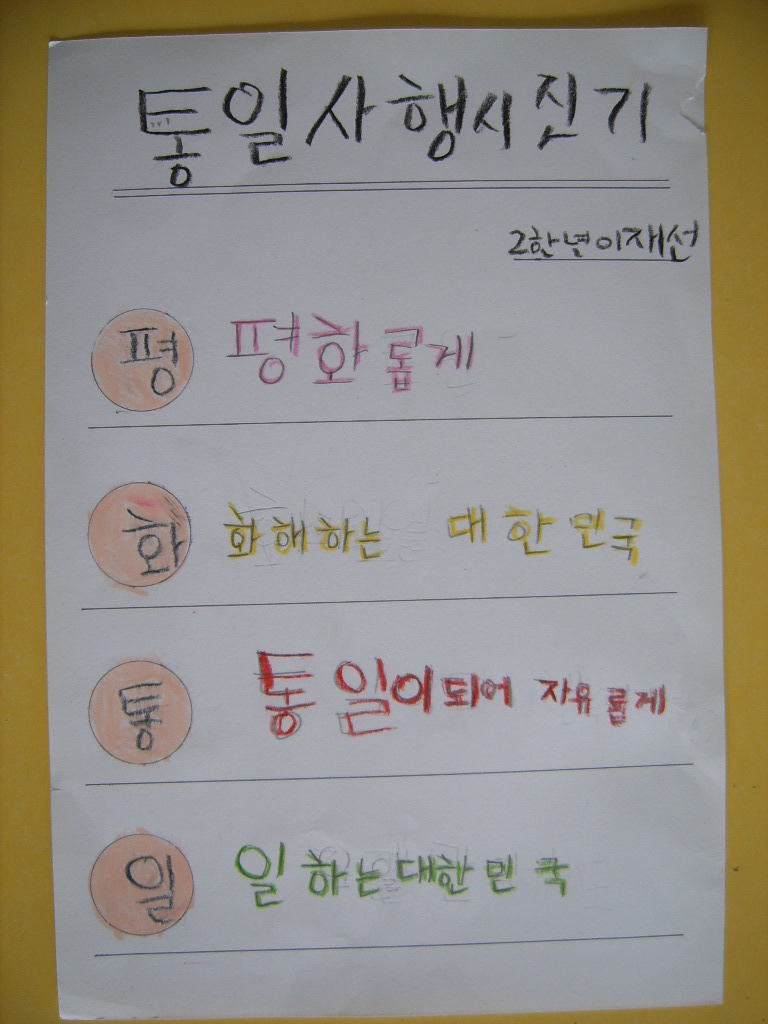 통일사행시짓기
2학년이재선
평 평화롭게
화 화해하는 대한민국
통 통일이되어 자유롭게
일 일하는대한민국